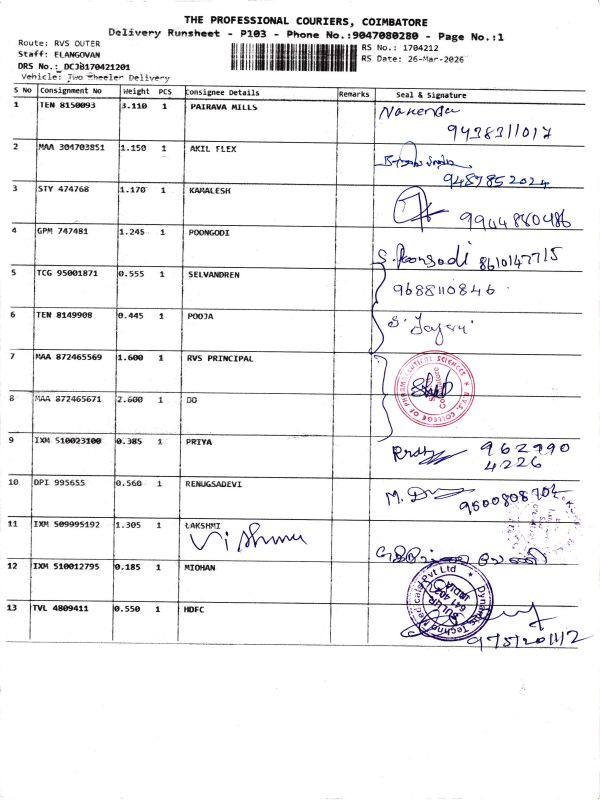 THE PROFESSIONAL COURIERS, COIMBATORE
Delivery Runsheet - P103 - Phone No.:9047080280 - Page No.:1
Route: RVS OUTER
RS No.: 1704212
Staff: ELANGOVAN
RS Date: 26-Mar-2026
DRS No.: DCJB170421201
Vehicle: Two Wheeler Delivery
S No Consignment No Weight PCS Consignee Details Remarks Seal & Signature
1 TEN 8150093 3.110 1 PAIRAVA MILLS
9438311017
2 MAA 304703851 1.150 1 AKIL FLEX
9487852024
3 STY 474768 1.170 1 KAMALESH
9944880486
4 GPM 747481 1.245 1 POONGODI
S. Poongodi 8610147715
5 TCG 95001871 0.555 1 SELVANDREN
9688110846
6 TEN 8149908 0.445 1 POOJA
7 MAA 872465569 1.600 1 RVS PRINCIPAL
COLLEGE OF PHARMACEUTICAL SCIENCES * R.V.S.
8 MAA 872465671 2.600 1 DO
9 IXM 510023100 0.385 1 PRIYA
962790
4226
10 DPI 995655 0.560 1 RENUGSADEVI
9500808702
11 IXM 509995192 1.305 1 LAKSHMI
Vishnu
12 IXM 510012795 0.185 1 MIOHAN
13 TVL 4809411 0.550 1 HDFC
SULUR
INDIA